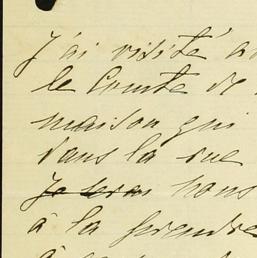 J'ai visité a
le Comte de
maison qui
dans la rue
Je serai nous
à la prendre
à